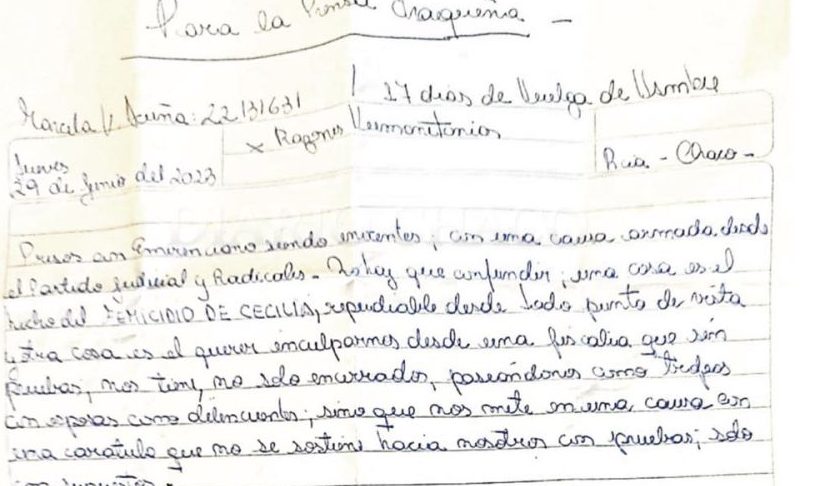 Para la Prensa Chaqueña -
Marcela V. Acuña: 22131631 | 17 días de Huelga de Hambre
x Razones Humanitarias
Jueves
29 de Junio del 2023
Rcia - Chaco -
Presos con Emerenciano siendo inocentes; con una causa armada desde
el Partido Judicial y Radicales - No hay que confundir; una cosa es el
hecho del FEMICIDIO DE CECILIA, repudiable desde todo punto de vista
y otra cosa es el querer inculparnos desde una fiscalía que sin
pruebas, nos tiene, no solo encerrados, paseándonos como trofeos
con esposas como delincuentes; sino que nos mete en una causa con
una caratula que no se sostiene hacia nosotros con pruebas; solo
con supuestos.